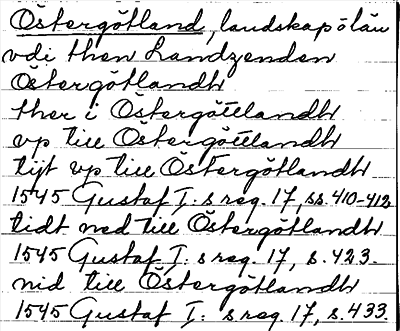 Östergötland, landskap o län
vdi then Landzenden
Östergötlandh
ther i Östergöttlandh
vp till Östergöttlandh
tijt vp till Östergötlandh
1545 Gustaf I:s reg. 17, ss. 410-412
tidt ned till Östergötlandh
1545 Gustaf I:s reg. 17, s. 423.
nid till Östergötlandh
1545 Gustaf I:s reg. 17, s. 433.